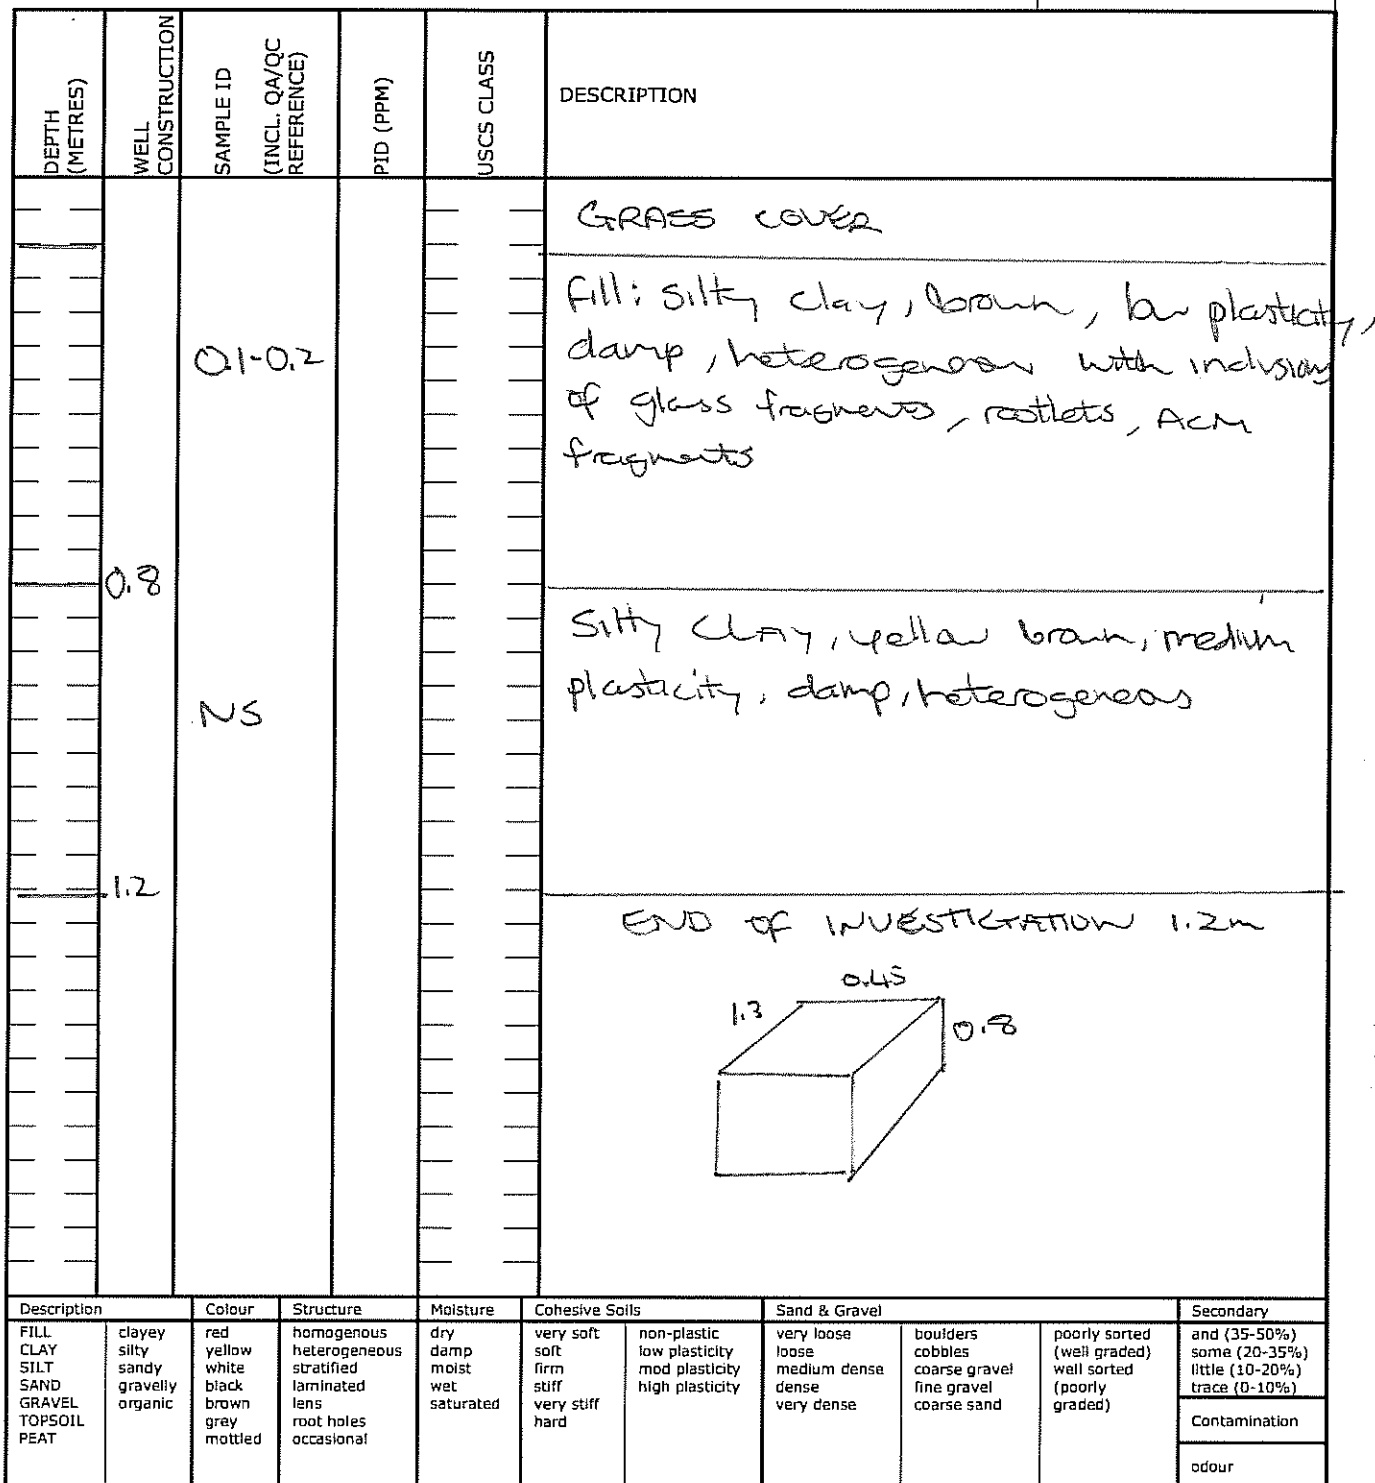 DEPTH
(METRES)
WELL
CONSTRUCTION
SAMPLE ID
(INCL. QA/QC
REFERENCE)
PID (PPM)
USCS CLASS
DESCRIPTION
GRASS COVER
Fill: Silty clay, brown, low plasticity,
0.1-0.2
damp, heterogeneous with inclusions
of glass fragments, rootlets, ACM
fragments
0.8
Silty CLAY, yellow brown, medium
plasticity, damp, heterogeneous
NS
1.2
END OF INVESTIGATION 1.2m
0.45
1.3
0.8
Description
FILL
CLAY
SILT
SAND
GRAVEL
TOPSOIL
PEAT
clayey
silty
sandy
gravelly
organic
Colour
red
yellow
white
black
brown
grey
mottled
Structure
homogenous
heterogeneous
stratified
laminated
lens
root holes
occasional
Moisture
dry
damp
moist
wet
saturated
Cohesive Soils
very soft
soft
firm
stiff
very stiff
hard
non-plastic
low plasticity
mod plasticity
high plasticity
Sand & Gravel
very loose
loose
medium dense
dense
very dense
boulders
cobbles
coarse gravel
fine gravel
coarse sand
poorly sorted
(well graded)
well sorted
(poorly
graded)
Secondary
and (35-50%)
some (20-35%)
little (10-20%)
trace (0-10%)
Contamination
odour